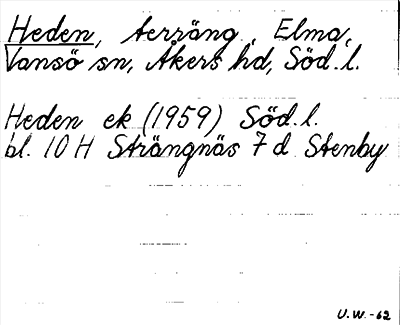 Heden, terräng, Elma,
Vansö sn, Åkers hd, Söd.l.
Heden ek (1959) Söd.l.
bl. 10 H Strängnäs 7 d Stenby
U.W.-62